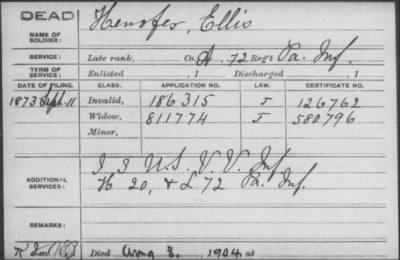 DEAD
Henofer, Ellis
NAME OF SOLDIER:
SERVICE: Late rank, Co. A. 72 Reg't Pa. Inf.
TERM OF SERVICE: Enlisted , 1 Discharged , 1
DATE OF FILING. CLASS. APPLICATION NO. LAW. CERTIFICATE NO.
1873 Sept. 11 Invalid, 186315 J 126762
Widow, 811774 J 580796
Minor,
ADDITIONAL SERVICES: I 3 U.S. V. V. Inf
H 20, & L 72 Pa. Inf.
REMARKS:
Died Aug 3, 1904, at